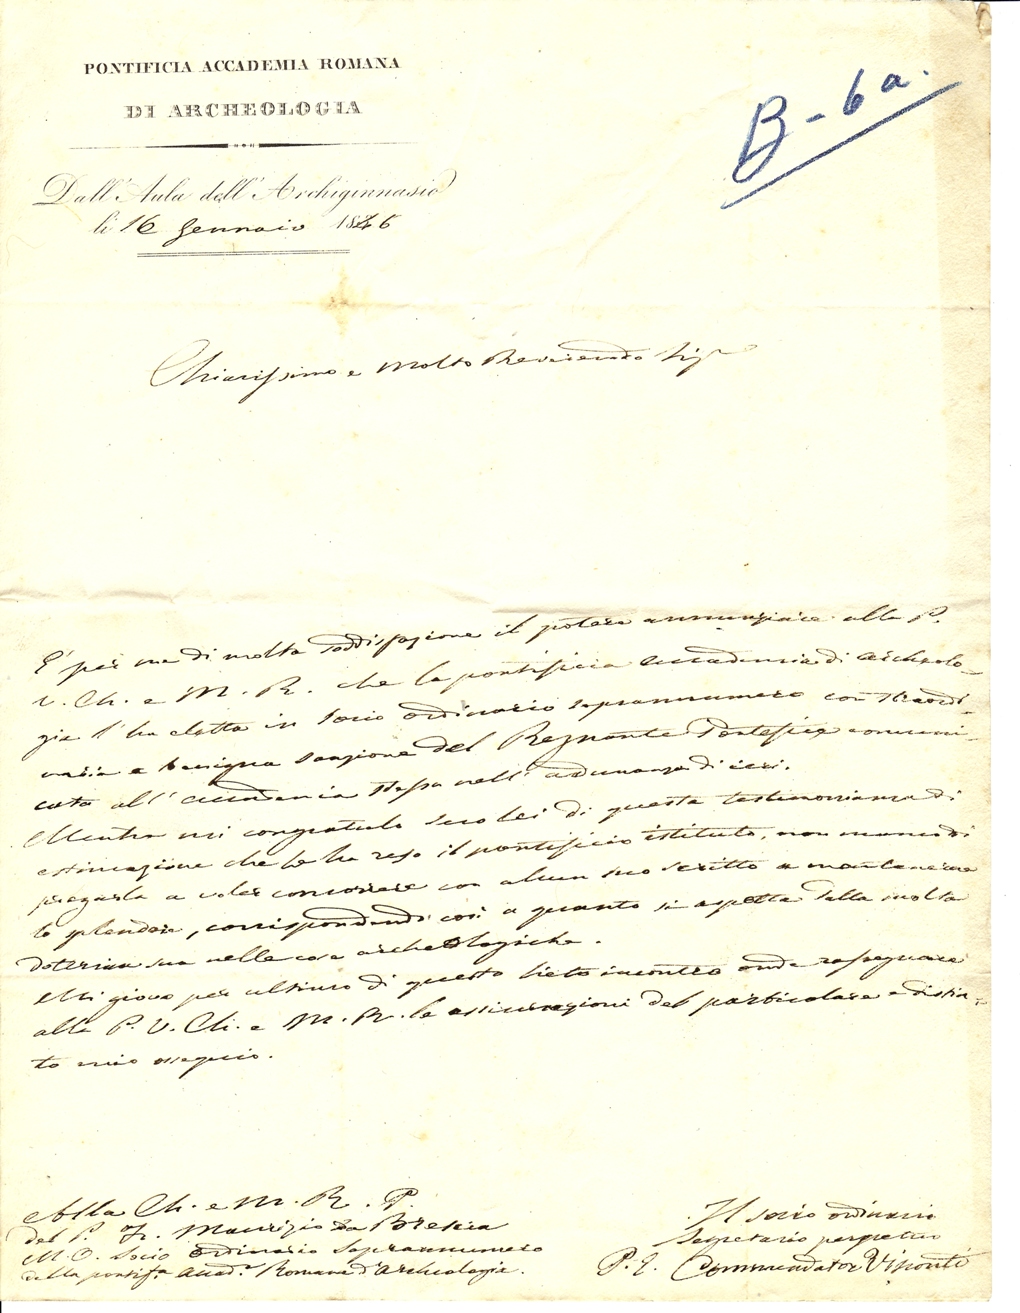 PONTIFICIA ACCADEMIA ROMANA
DI ARCHEOLOGIA
B-6a.
Dall'Aula dell'Archiginnasio
li 16 Gennaio 1846
Chiarissimo e Molto Reverendo Sigr
E' per me di molta soddisfazione il potere annunziare alla P.
V. Ch. e M. R. che la pontificia accademia di archeolo-
gia l'ha eletta in socio ordinario soprannumero con straordi-
naria e benigna sanzione del Regnante Pontefice comuni-
cata all'accademia stessa nell'adunanza di ieri.
Mentre mi congratulo seco lei di questa testimonianza di
estimazione che le ha reso il pontificio istituto, non manco di
pregarla a voler concorrere con alcun suo scritto a mantenerne
lo splendore, corrispondendo così a quanto si aspetta dalla molta
dottrina sua nelle cose archeologiche.
Mi giovo per ultimo di questo lieto incontro onde rassegnare
alla P. V. Ch. e M. R. le assicurazioni del particolare e distin-
to mio ossequio.
Alla Ch. e M. R. P.
del P. Fr. Maurizio da Brescia
M. O. Socio ordinario soprannumero
della pontifa. Accada. Romana d'Archeologia.
Il socio ordinario
Segretario perpetuo
P. E. Commendator Visconti